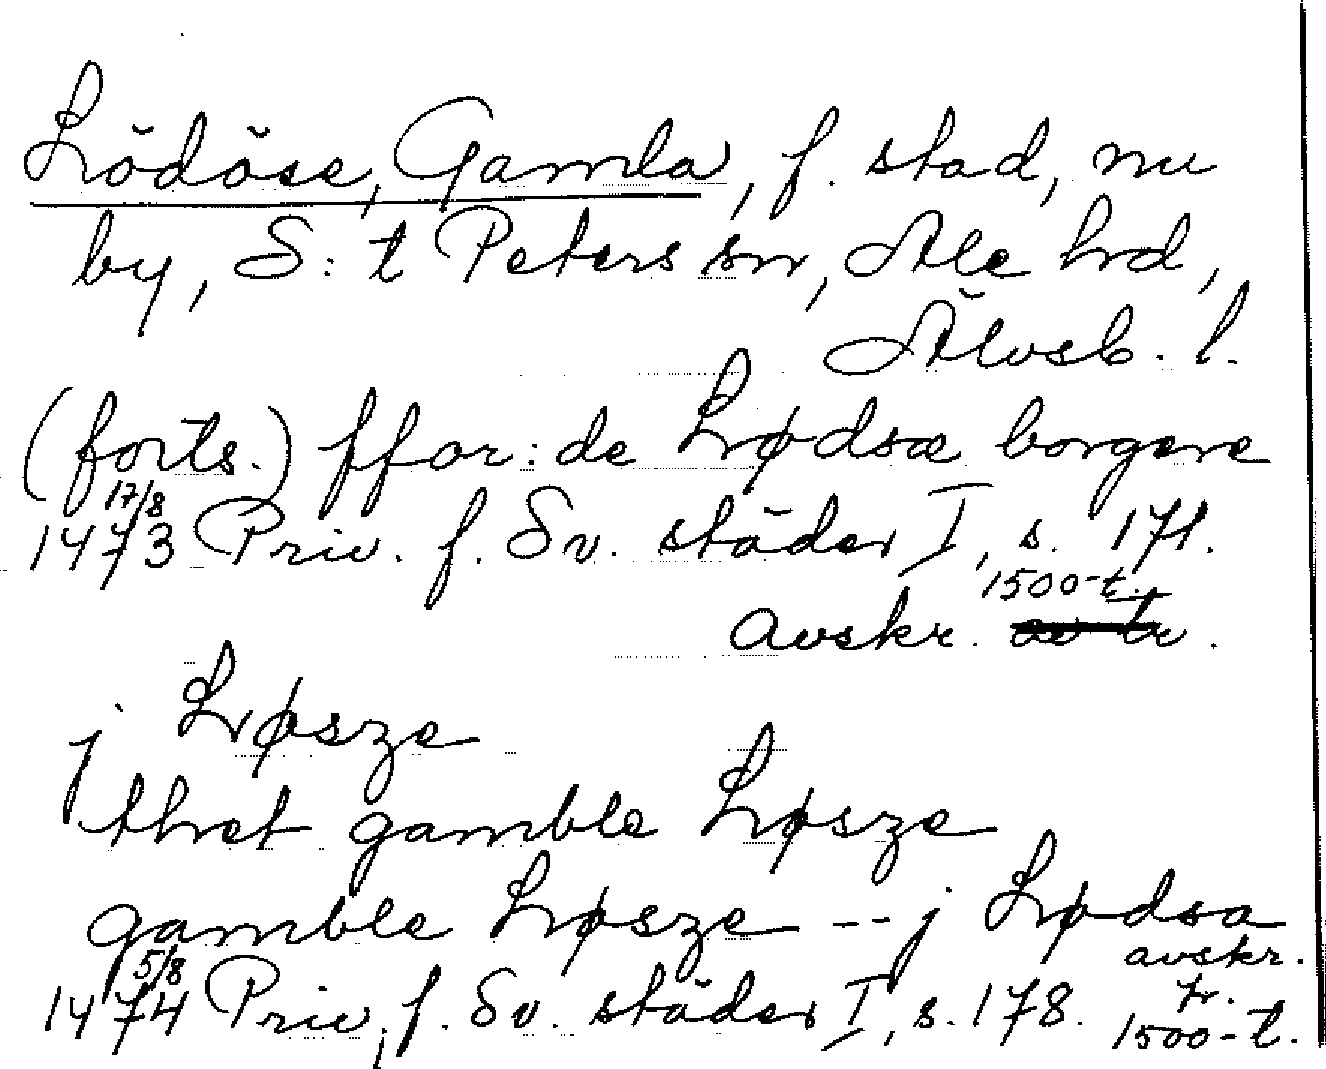 Lödöse, Gamla, f. stad, nu
by, S:t Peters sn, Ale hd,
Älvsb. l.
(forts.) ffor: de Lødsæ borgere
17/8
1473 Priv. f. Sv. städer I, s. 171.
1500-t.
avskr.
j Løsze
thet gamble Løsze
gamble Løsze -- j Lødsa
5/8 avskr.
1474 Priv. f. Sv. städer I, s. 178. fr.
1500-t.